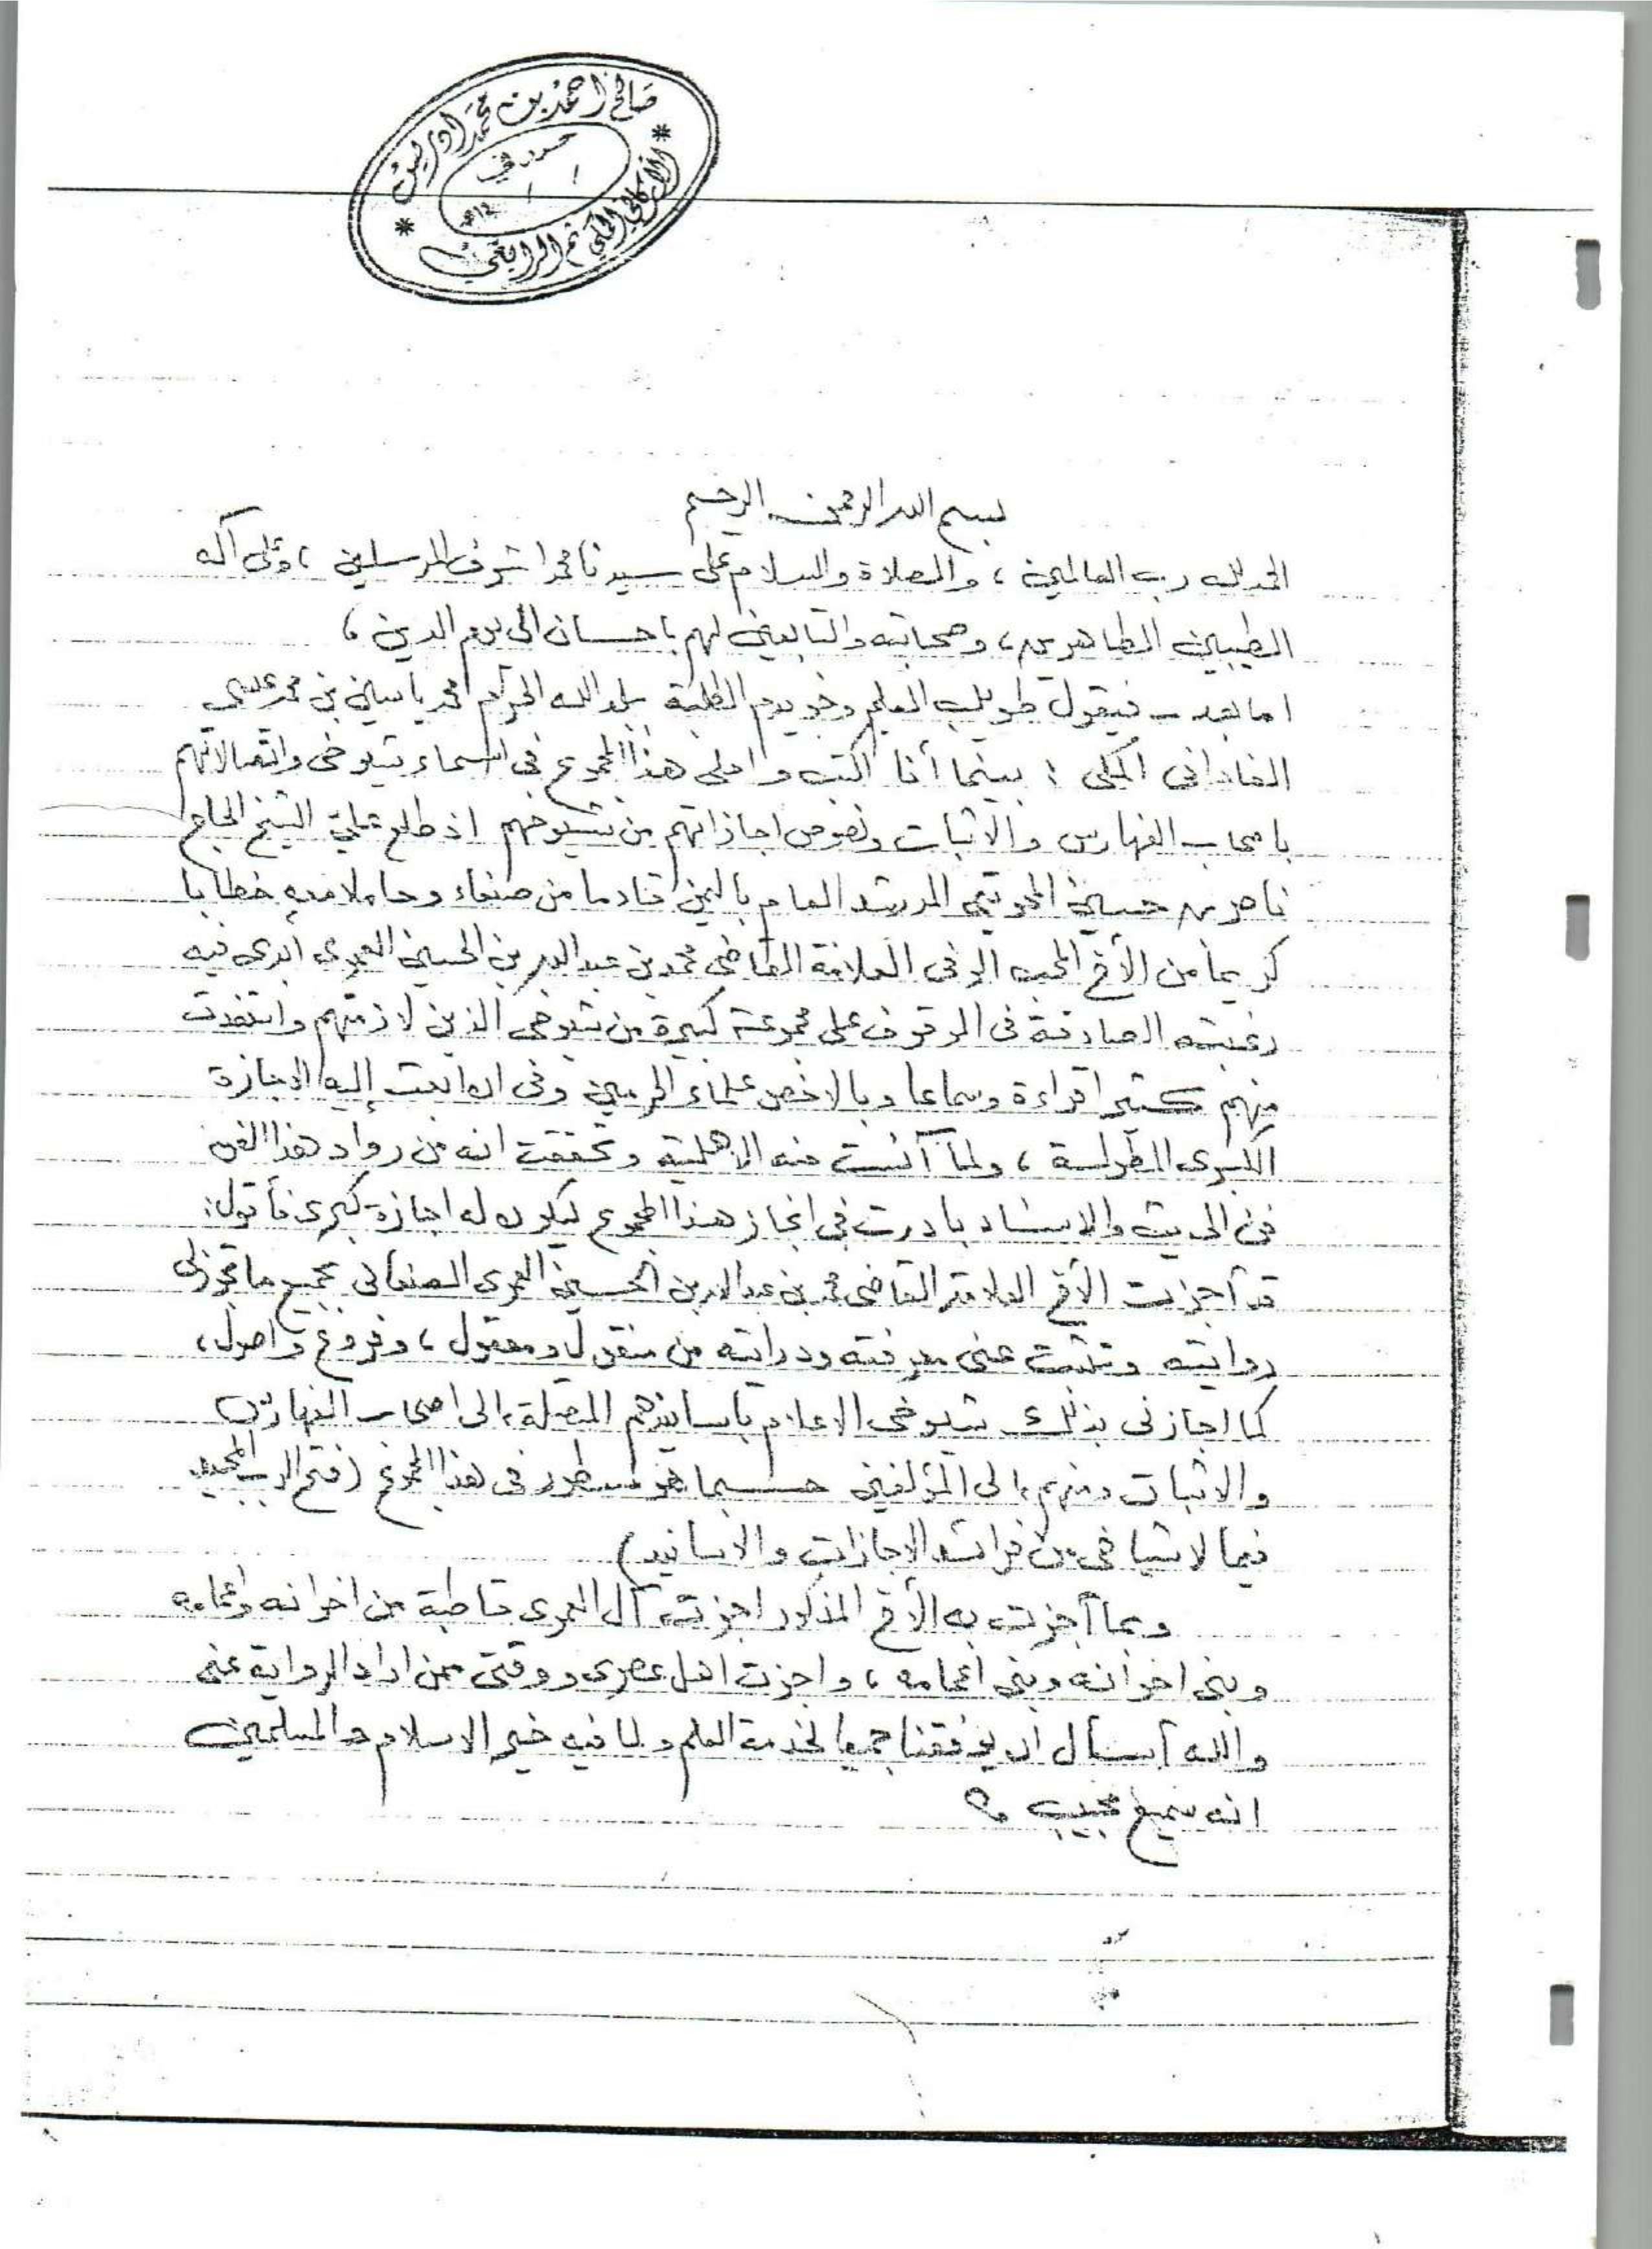 صالح احمد بن محمد ادريس
حرر في
١٤ هـ
الاركاني المكي ثم الرابغي
بسم الله الرحمن الرحيم
الحمد لله رب العالمين ، والصلاة والسلام على سيدنا محمد اشرف المرسلين ، وعلى آله
الطيبين الطاهرين ، وصحابته والتابعين لهم باحسان الى يوم الدين ،
اما بعد ـ فيقول طويلب العلم وخويدم الطلبة ببلد الله الحرام محمد ياسين بن محمد عيسى
الفاداني المكي : بينما أنا اكتب واملى هذا المجموع في اسماء شيوخى واتصالاتهم
باصحاب الفهارس والاثبات ونصوص اجازاتهم من شيوخهم اذ طلع علىّ الشيخ الحاج
ناصر بن حسين المرشد العام باليمن قادما من صنعاء وحاملا معه خطابا
كريما من الأخ المحب الوفى العلامة القاضى محمد بن عبد الله بن الحسين العمرى أبدى فيه
رغبته الصادقة فى الوقوف على مجموعة كبيرة من شيوخى الذين لازمتهم واستفدت
منهم كثيرا قراءة وسماعا وبالاخص علماء الحرمين وفى ان ابعث إليه الاجازة
الكبرى المطولة ، ولما آنست منه الاهلية وتحققت انه من رواد هذا الفن
فن الحديث والاسناد بادرت في انجاز هذا المجموع ليكون له اجازة كبرى فأقول :
قد أجزت الأخ العلامة القاضى محمد بن عبد الله بن الحسين العمرى الصنعانى بجميع ما تجوز لى
روايته وتثبت عنى معرفته ودرايته من منقول ومعقول ، وفروع واصول ،
كما اجازنى بذلك شيوخى الاعلام باسانيدهم المتصلة ، الى اصحاب الفهارس
والاثبات ومنهم ، الى المؤلفين حسبما هو مسطور فى هذا المجموع (فتح الرب المجيد
فيما لاشياخى من فرائد الاجازات والاسانيد)
وبما أجزت به الأخ المذكور اجزت آل العمرى قاطبة من اخوانه واعمامه
وبنى اخوانه وبنى أعمامه ، واجزت اهل عصرى ووقتى ممن اراد الرواية عنى
والله أسأل ان يوفقنا جميعا لخدمة العلم ولما فيه خير الاسلام والمسلمين
انه سميع مجيب